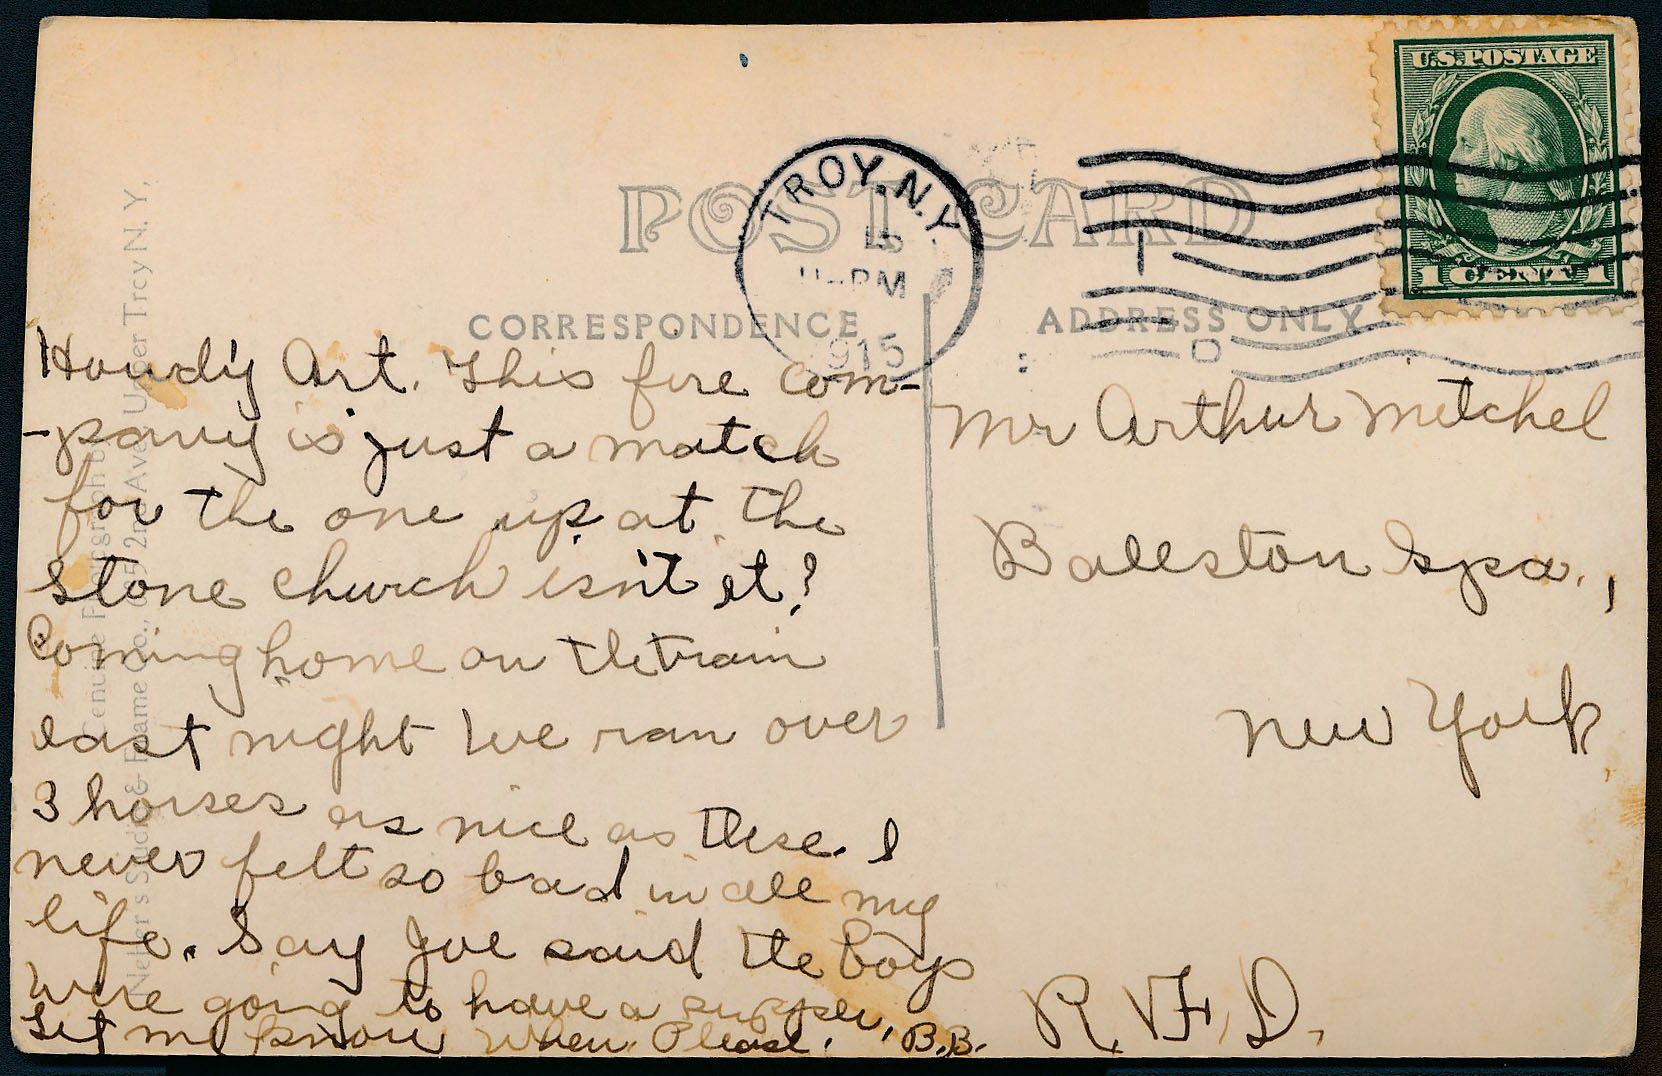 U.S. POSTAGE
1 CENT 1
POST CARD
TROY, N.Y.
PM
1915
CORRESPONDENCE
ADDRESS ONLY
Howdy Art. This fire com-
-pany is just a match
for the one up at the
stone church isn't it?
Coming home on the train
last night we ran over
3 horses as nice as these. I
never felt so bad in all my
life. Say Joe said the boys
were going to have a supper,
Let me know when. Please. B.B.
Mr Arthur Mitchel
Ballston Spa.,
New York
R.F.D.
Genuine Photograph
Studio & Frame Co., 2nd Ave., Upper Troy N. Y.